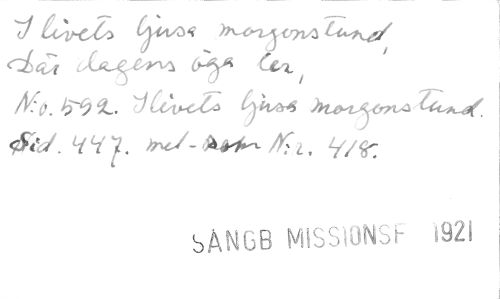 I livets ljusa morgonstund,
Där dagens öga ler,
N:o. 592. I livets ljusa morgonstund.
Sid. 447. mel-som N:r. 418.
SÅNGB MISSIONSF 1921